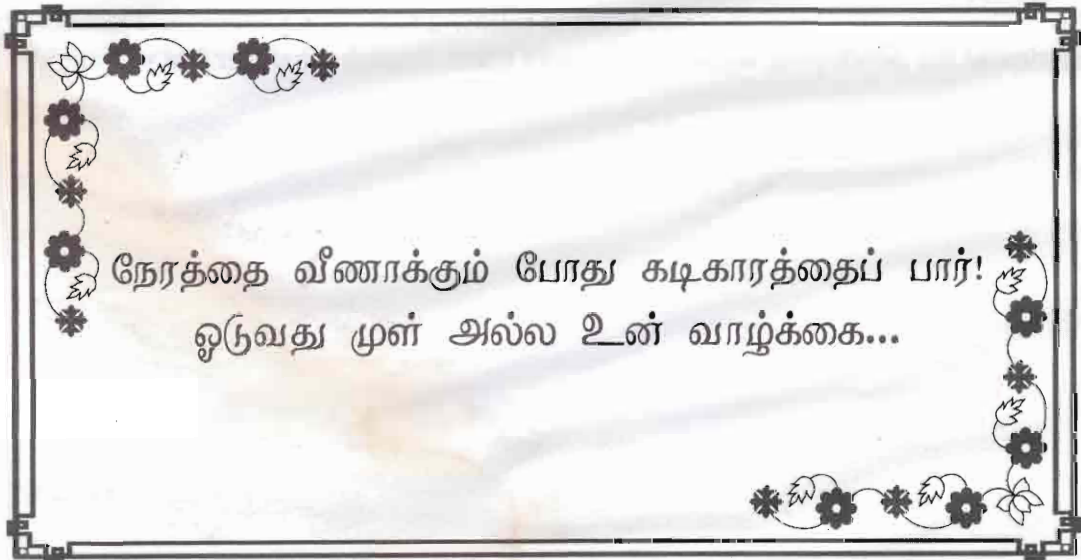 நேரத்தை வீணாக்கும் போது கடிகாரத்தைப் பார்!
ஓடுவது முள் அல்ல உன் வாழ்க்கை...